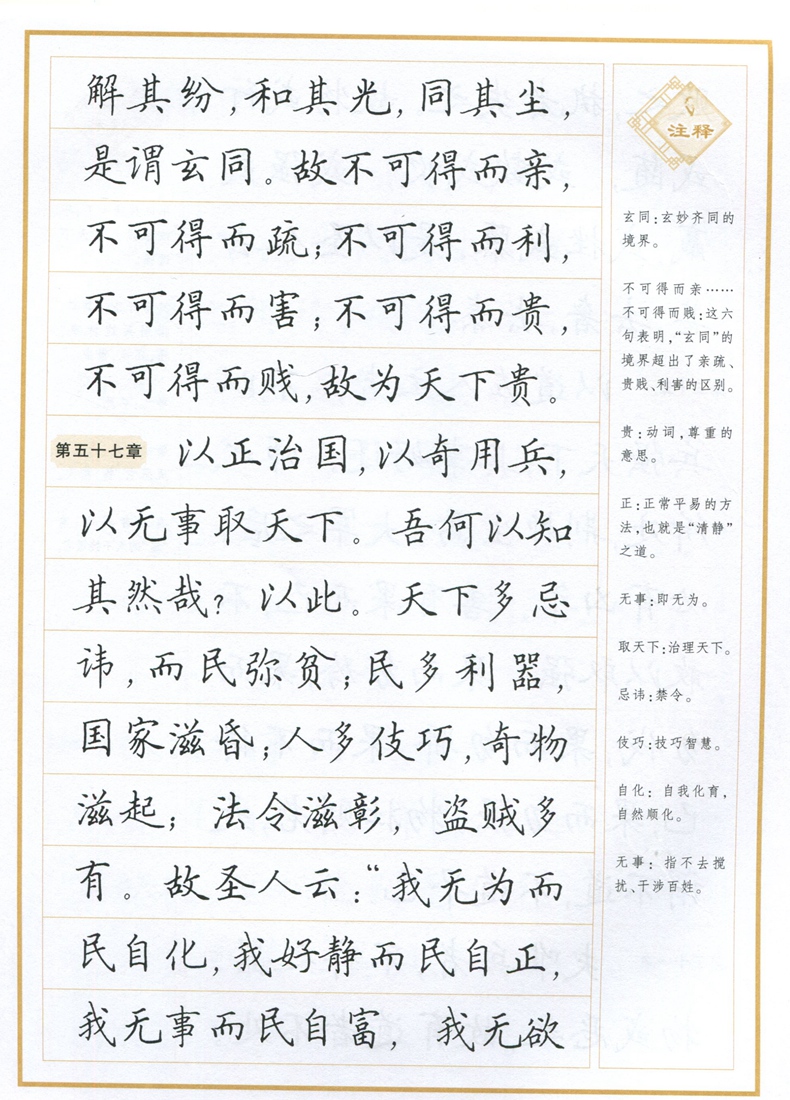 解其纷,和其光,同其尘,
是谓玄同。故不可得而亲,
不可得而疏;不可得而利,
不可得而害;不可得而贵,
不可得而贱,故为天下贵。
第五十七章 以正治国,以奇用兵,
以无事取天下。吾何以知
其然哉?以此。天下多忌
讳,而民弥贫;民多利器,
国家滋昏;人多伎巧,奇物
滋起;法令滋彰,盗贼多
有。故圣人云:“我无为而
民自化,我好静而民自正,
我无事而民自富,我无欲
注释
玄同:玄妙齐同的
境界。
不可得而亲……
不可得而贱:这六
句表明,“玄同”的
境界超出了亲疏、
贵贱、利害的区别。
贵:动词,尊重的
意思。
正:正常平易的方
法,也就是“清静”
之道。
无事:即无为。
取天下:治理天下。
忌讳:禁令。
伎巧:技巧智慧。
自化:自我化育,
自然顺化。
无事:指不去搅
扰、干涉百姓。